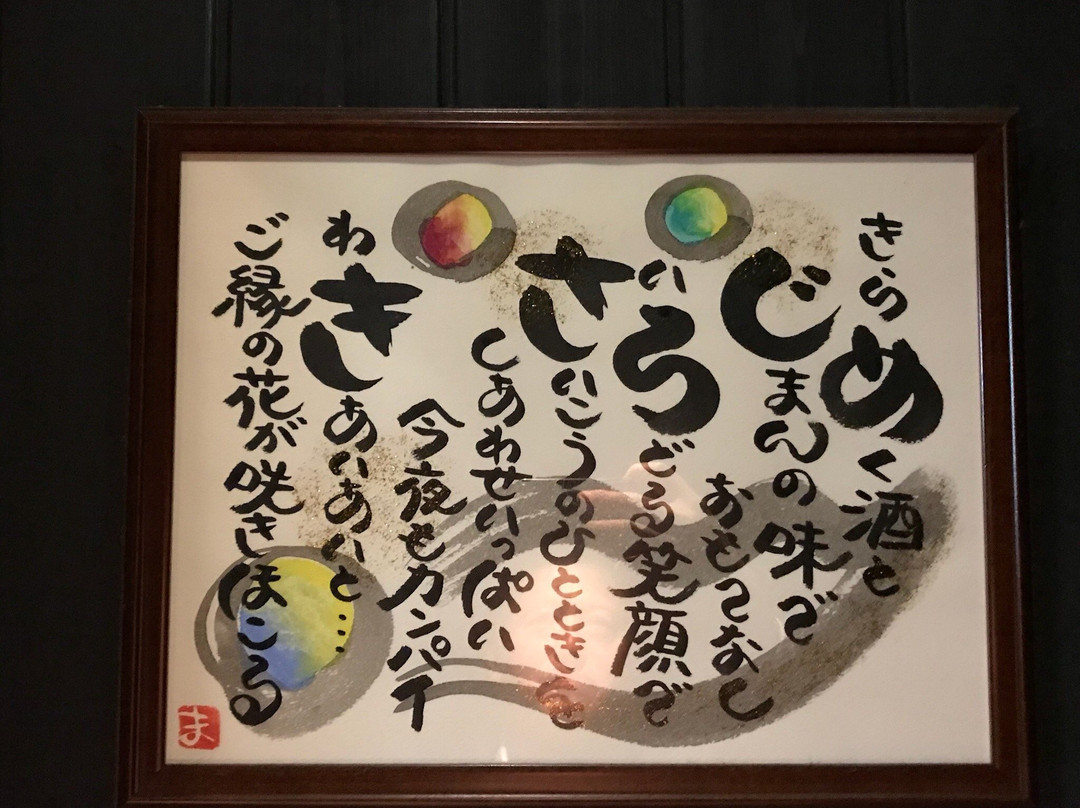 きらめく酒と
じまんの味で
おもてなし
いろどる笑顔で
さいこうのひとときを
しあわせいっぱい
今夜もカンパイ
わきあいあいと…
ご縁の花が咲きほこる
ま